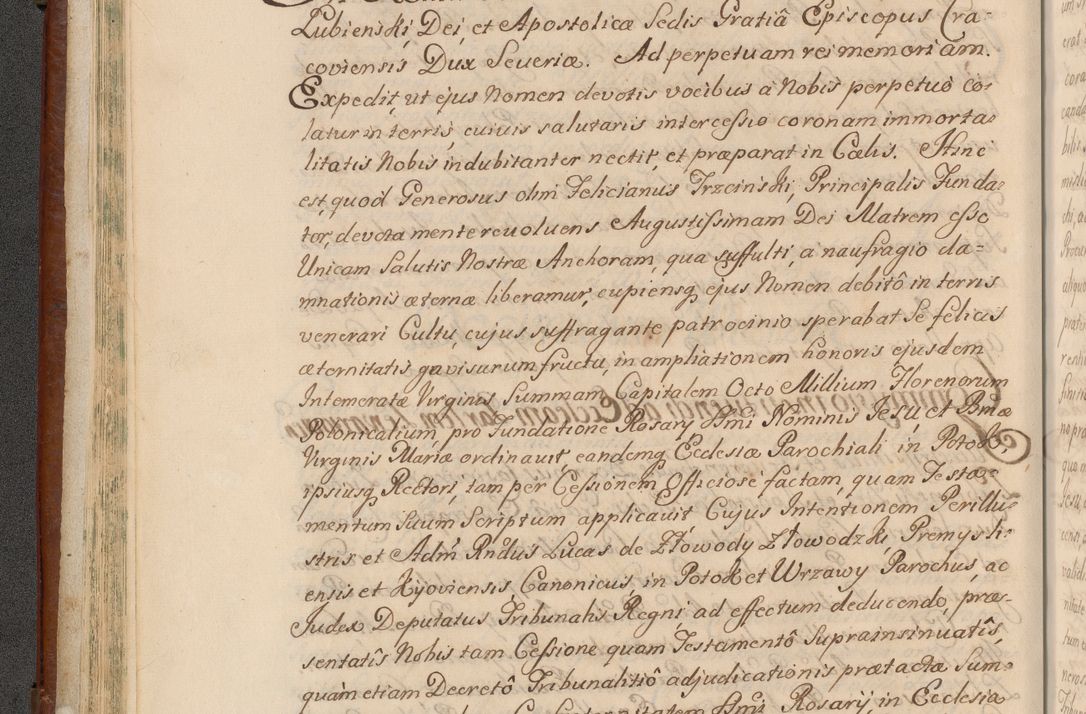 Lubienski, Dei, et Apostolicæ Sedis Gratiâ Episcopus Cra-
coviensis Dux Severiæ. Ad perpetuam rei memoriam.
Expedit, ut ejus Nomen devotis vocibus a Nobis perpetuò co-
latur in terris, cuius salutaris intercessio coronam immorta-
litatis Nobis indubitanter nectit, et præparat in Cœlis. Hinc
est, quod Generosus olim Felicianus Trzcinski, Principalis Funda-
tor, devota mente revoluens Augustissimam Dei Matrem esse
Unicam Salutis Nostræ Anchoram, qua suffulti, a naufragio da-
mnationis æternæ liberamur, cupiensq ejus Nomen debitô in terris
venerari Cultu, cujus suffragante patrocinio sperabat se felicis
æternitatis gavisurum fructu, in ampliationem honoris ejusdem
Intemeratæ Virginis Summam Capitalem Octo Millium Florenorum
Polonicalium pro Fundatione Rosarij Smi Nominis Jesu, et Bmæ
Virginis Mariæ ordinavit, eandemq Ecclesiæ Parochiali in Potok,
ipsiusq Rectori, tam per Cessionem Officiosè factam, quam Testa-
mentum Suum Scriptum applicavit Cujus Intentionem Perillu-
stris et Adm Rndus Lucas de Złowody Złowodzki, Premysli-
ensis et Kijoviensis, Canonicus, in Potok et Wrzawy Parochus, ac
Judex Deputatus Tribunalis Regni ad effectum deducendo, præ-
sentatîs Nobis tam Cessione quam Testamentô Suprainsinuatîs,
quàm etiam Decretô Tribunalitiô adjudicationis prætactæ Sum-
Smi Rosarij, in Ecclesia